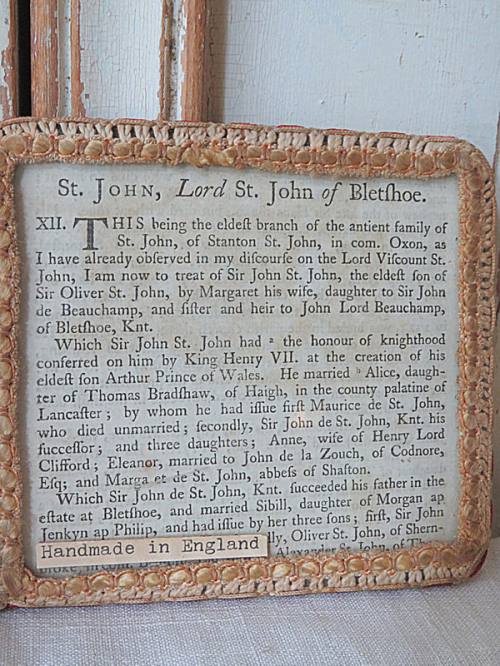 St. JOHN, Lord St. John of Bletſhoe.
XII. THIS being the eldeſt branch of the antient family of
St. John, of Stanton St. John, in com. Oxon, as
I have already obſerved in my diſcourſe on the Lord Viſcount St.
John, I am now to treat of Sir John St. John, the eldeſt ſon of
Sir Oliver St. John, by Margaret his wife, daughter to Sir John
de Beauchamp, and ſiſter and heir to John Lord Beauchamp,
of Bletſhoe, Knt.
Which Sir John St. John had ᵃ the honour of knighthood
conferred on him by King Henry VII. at the creation of his
eldeſt ſon Arthur Prince of Wales. He married ᵇ Alice, daugh-
ter of Thomas Bradſhaw, of Haigh, in the county palatine of
Lancaſter; by whom he had iſſue firſt Maurice de St. John,
who died unmarried; ſecondly, Sir John de St. John, Knt. his
ſucceſſor; and three daughters; Anne, wife of Henry Lord
Clifford; Eleanor, married to John de la Zouch, of Codnore,
Eſq; and Margaret de St. John, abbeſs of Shaſton.
Which Sir John de St. John, Knt. ſucceeded his father in the
eſtate at Bletſhoe, and married Sibill, daughter of Morgan ap
Jenkyn ap Philip, and had iſſue by her three ſons; firſt, Sir John
lly, Oliver St. John, of Shern-
Handmade in England
Alexander St. John, of